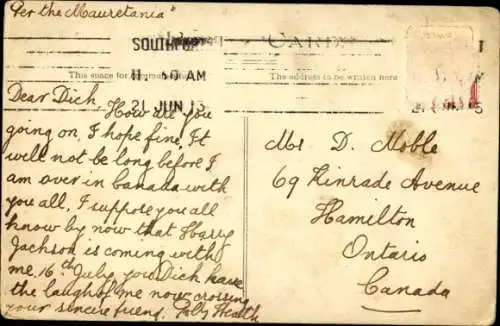 Per the "Mauretania"
SOUTHPORT
11.30 AM
21 JUN 13
This space for
The address to be written here
Dear Dick, How are you
going on, I hope fine. It
will not be long before I
am over in Canada with
you all, I suppose you all
know by now that Harry
Jackson is coming with
me, 16th July, you Dick have
the laugh of me now crossing
your sincere friend,
Mr D. Noble
69 Kinrade Avenue
Hamilton
Ontario
Canada